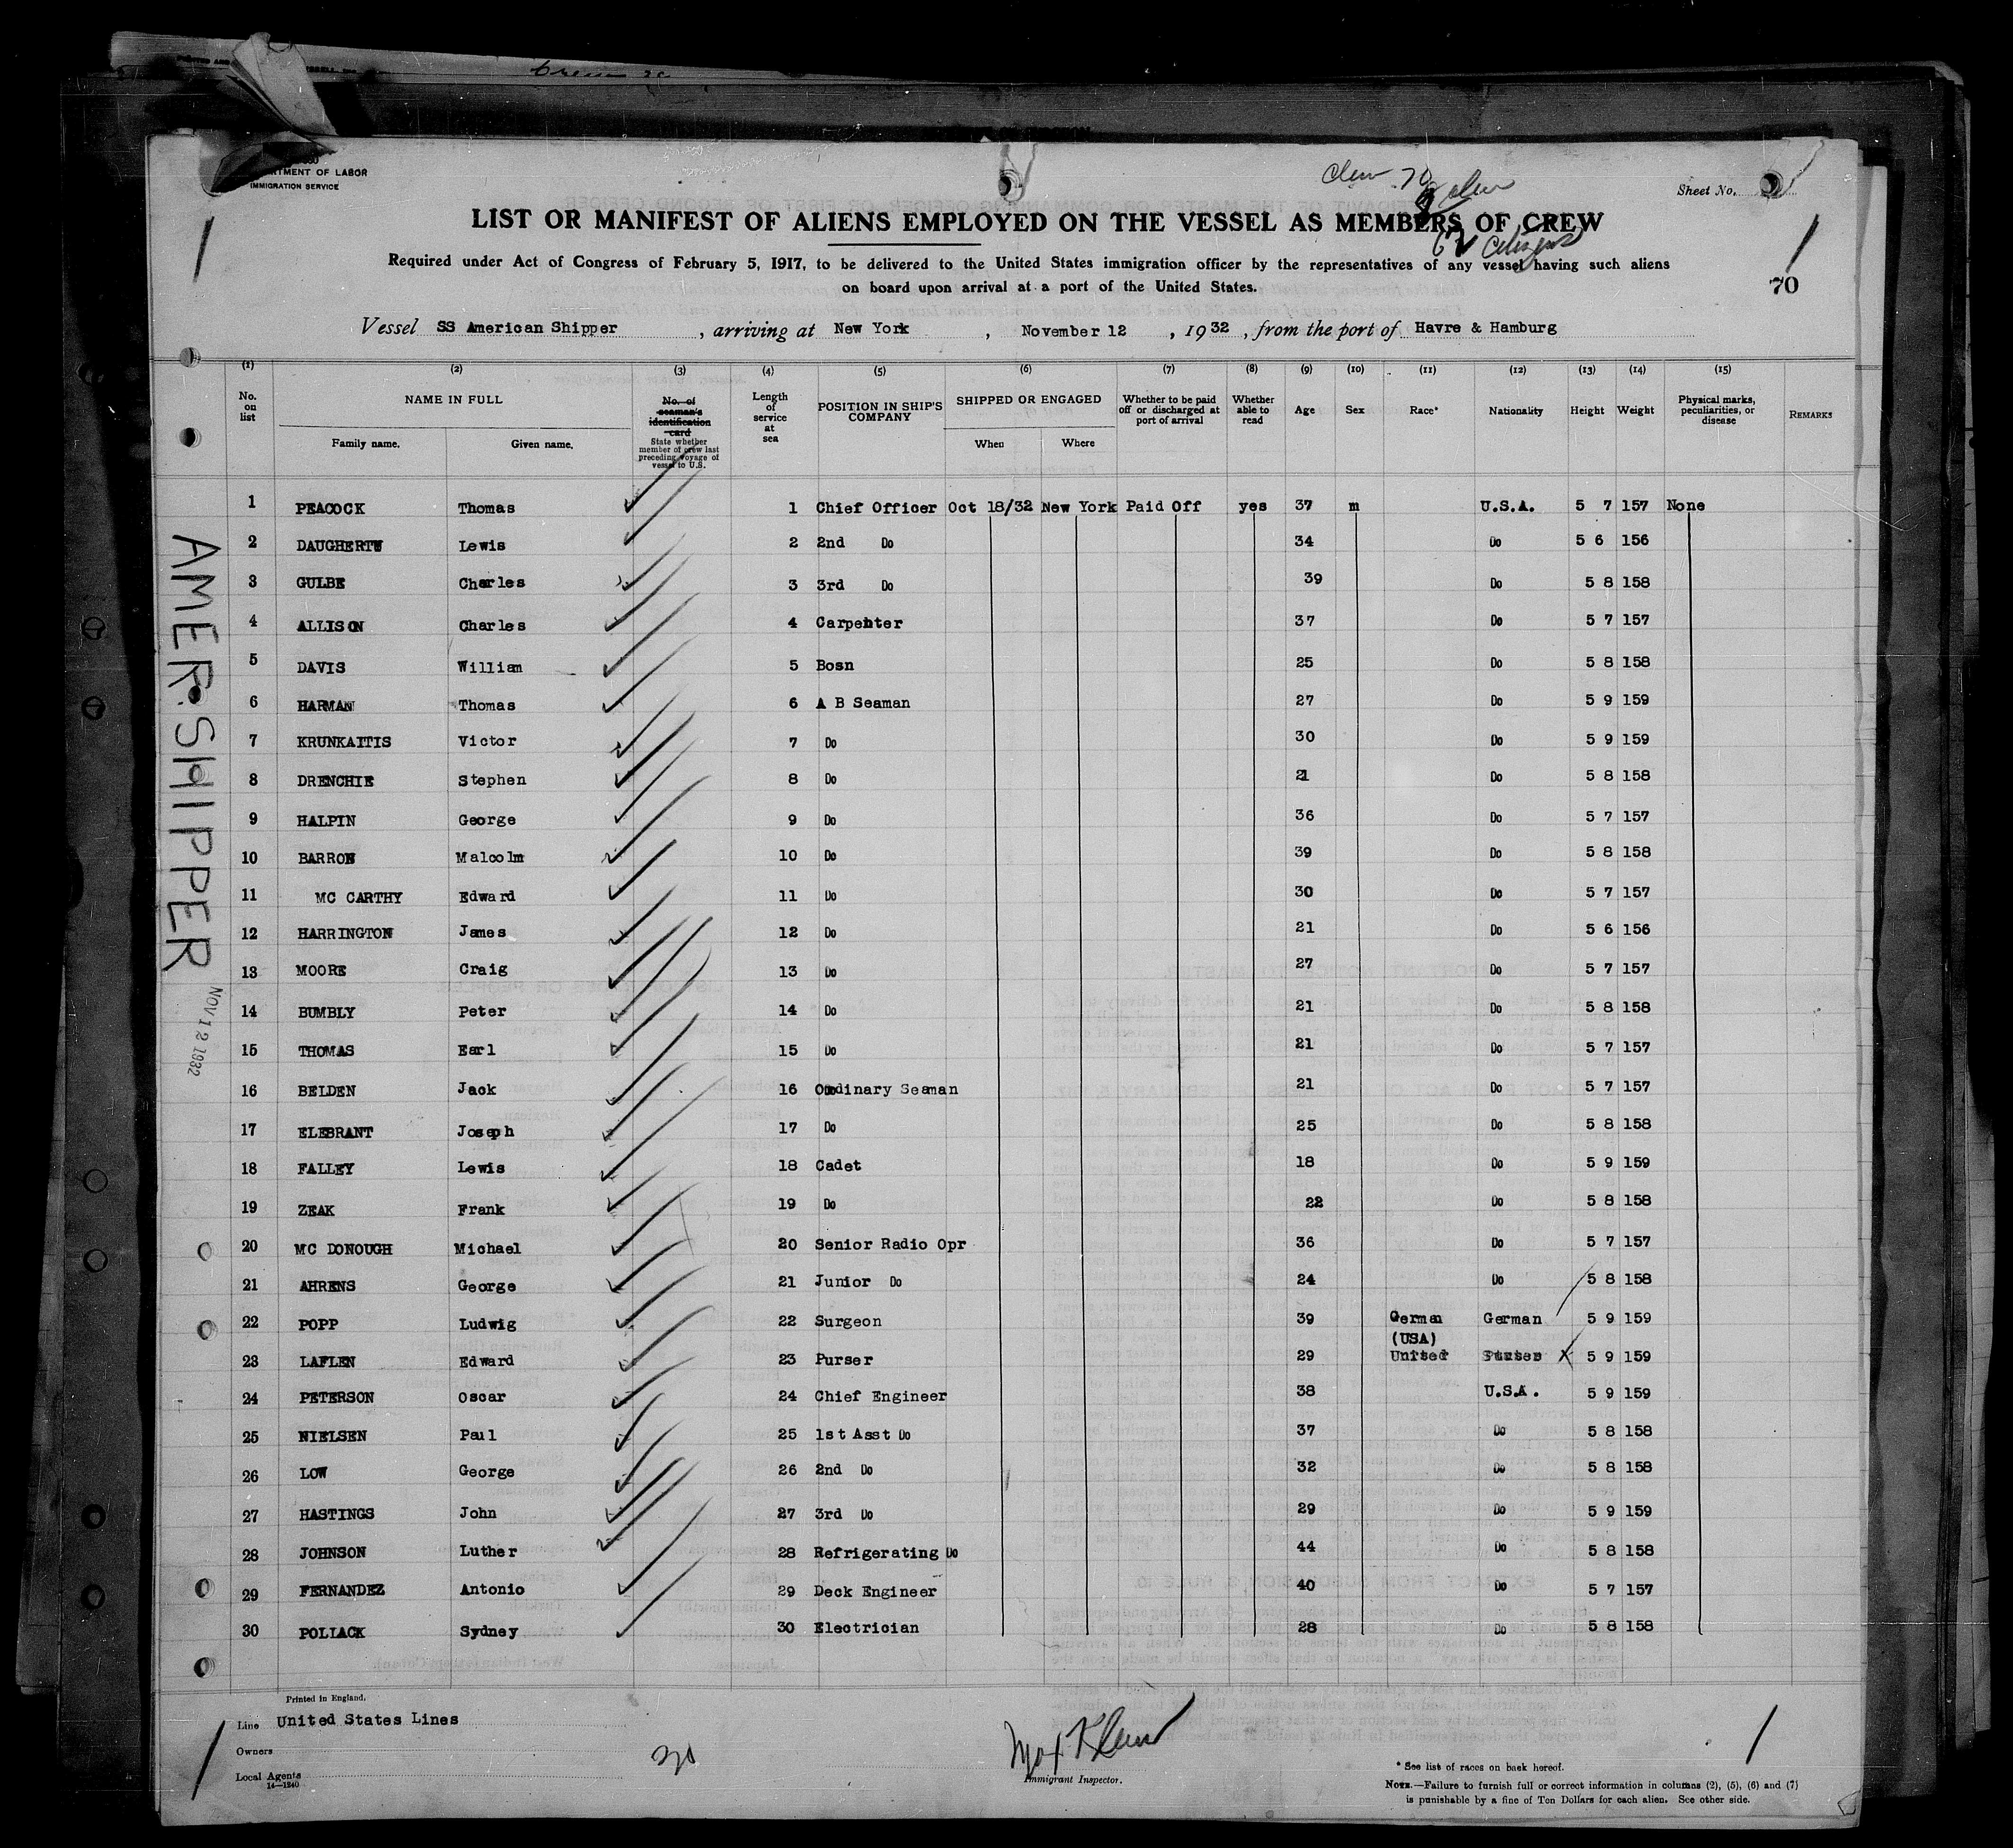 DEPARTMENT OF LABOR
IMMIGRATION SERVICE
Sheet No.
LIST OR MANIFEST OF ALIENS EMPLOYED ON THE VESSEL AS MEMBERS OF CREW
62 citizens
Required under Act of Congress of February 5, 1917, to be delivered to the United States immigration officer by the representatives of any vessel having such aliens
on board upon arrival at a port of the United States.
70
Vessel SS American Shipper, arriving at New York, November 12, 1932, from the port of Havre & Hamburg
(1) (2) (3) (4) (5) (6) (7) (8) (9) (10) (11) (12) (13) (14) (15)
No. on list NAME IN FULL Family name. Given name. No. of seaman's identification card State whether member of crew last preceding voyage of vessel to U.S. Length of service at sea POSITION IN SHIP'S COMPANY SHIPPED OR ENGAGED When Where Whether to be paid off or discharged at port of arrival Whether able to read Age Sex Race* Nationality Height Weight Physical marks, peculiarities, or disease REMARKS
1 PEACOCK Thomas 1 Chief Officer Oct 18/32 New York Paid Off yes 37 m U.S.A. 5 7 157 None
2 DAUGHERTW Lewis 2 2nd Do 34 Do 5 6 156
3 GULBE Charles 3 3rd Do 39 Do 5 8 158
4 ALLISON Charles 4 Carpenter 37 Do 5 7 157
5 DAVIS William 5 Bosn 25 Do 5 8 158
6 HARMAN Thomas 6 A B Seaman 27 Do 5 9 159
7 KRUNKAITIS Victor 7 Do 30 Do 5 9 159
8 DRENCHIE Stephen 8 Do 21 Do 5 8 158
9 HALPIN George 9 Do 36 Do 5 7 157
10 BARRON Malcolm 10 Do 39 Do 5 8 158
11 MC CARTHY Edward 11 Do 30 Do 5 7 157
12 HARRINGTON James 12 Do 21 Do 5 6 156
13 MOORE Craig 13 Do 27 Do 5 7 157
14 BUMBLY Peter 14 Do 21 Do 5 8 158
15 THOMAS Earl 15 Do 21 Do 5 7 157
16 BELDEN Jack 16 Ordinary Seaman 21 Do 5 7 157
17 ELEBRANT Joseph 17 Do 25 Do 5 8 158
18 FALLEY Lewis 18 Cadet 18 Do 5 9 159
19 ZEAK Frank 19 Do 22 Do 5 8 158
20 MC DONOUGH Michael 20 Senior Radio Opr 36 Do 5 7 157
21 AHRENS George 21 Junior Do 24 Do 5 8 158
22 POPP Ludwig 22 Surgeon 39 German German 5 9 159
(USA)
23 LAFLEN Edward 23 Purser 29 United States X 5 9 159
24 PETERSON Oscar 24 Chief Engineer 38 U.S.A. 5 9 159
25 NIELSEN Paul 25 1st Asst Do 37 Do 5 8 158
26 LOW George 26 2nd Do 32 Do 5 8 158
27 HASTINGS John 27 3rd Do 29 Do 5 9 159
28 JOHNSON Luther 28 Refrigerating Do 44 Do 5 8 158
29 FERNANDEZ Antonio 29 Deck Engineer 40 Do 5 7 157
30 POLLACK Sydney 30 Electrician 28 Do 5 8 158
AMER. SHIPPER
NOV 12 1932
Printed in England.
Line United States Lines
Owners
Local Agents
14—1240
30
Max Klein
Immigrant Inspector.
* See list of races on back hereof.
NOTE.—Failure to furnish full or correct information in columns (2), (5), (6) and (7)
is punishable by a fine of Ten Dollars for each alien. See other side.